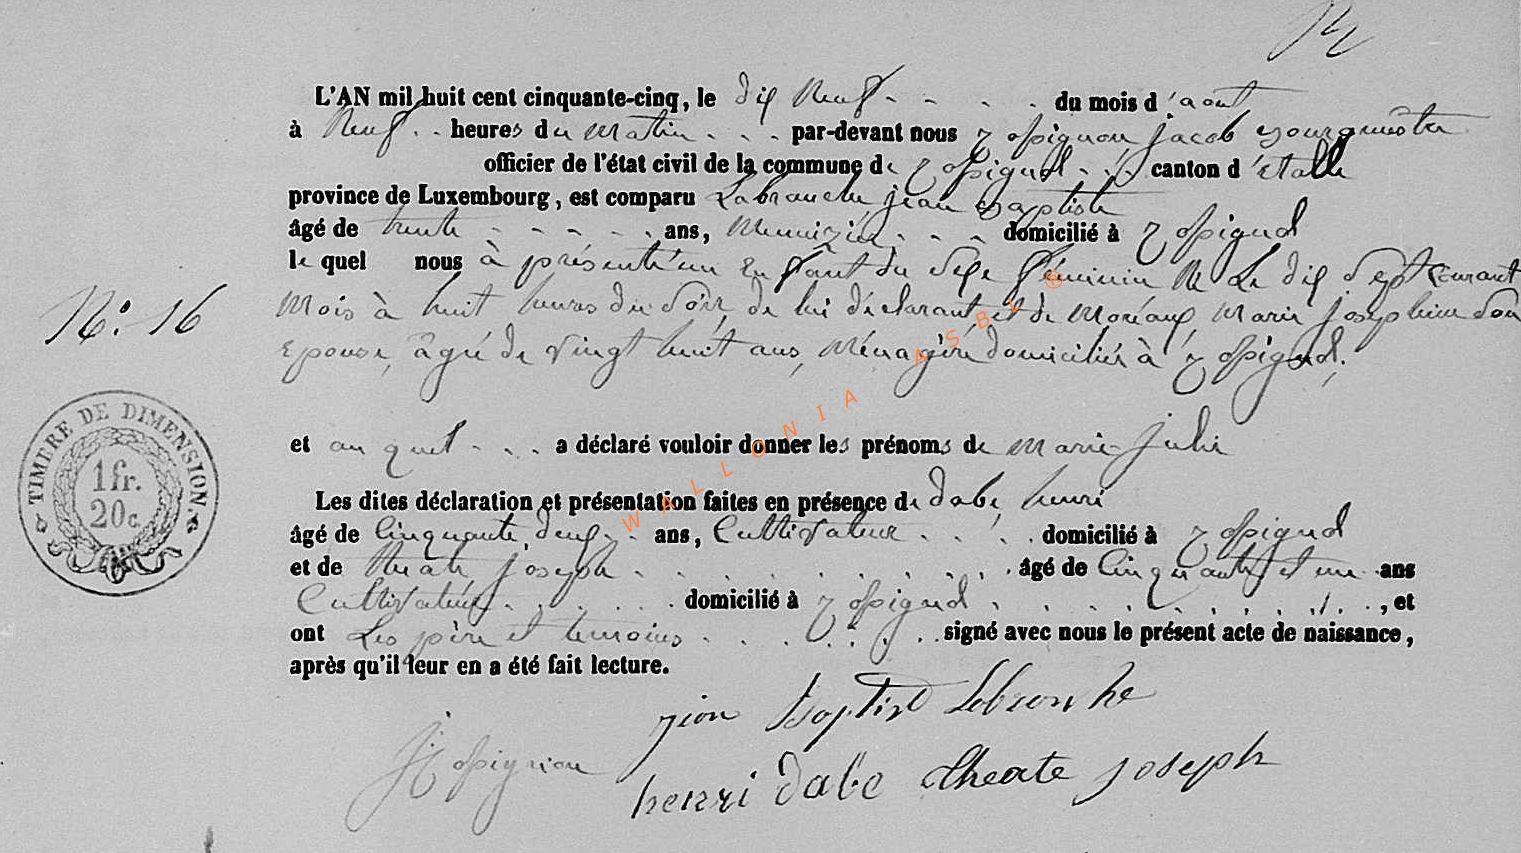 L'AN mil huit cent cinquante-cinq, le dix neuf du mois d'aout
à neuf heures du matin par-devant nous hospignon jacob Bourgmestre
officier de l'état civil de la commune de canton d'étalle
province de Luxembourg, est comparu Labranche jean Baptiste
âgé de trente ans, Menuizier domicilié à
le quel nous à présenté un Enfant du sexe féminin né Le dix sept courant
N.° 16
mois à huit heures du soir, de lui déclarant et de Moreaux, Marie josephine son
Epouse, âgée de vingt huit ans, Ménagère domiciliés à
et au quel a déclaré vouloir donner les prénoms de marie-julie
TIMBRE DE DIMENSION.
1 fr.
20 c.
Les dites déclaration et présentation faites en présence de dabe, henri
âgé de Cinquante deux ans, Cultivateur domicilié à
et de theate joseph âgé de Cinquante et un ans
Cultivateur domicilié à , et
ont Les père et temoins signé avec nous le présent acte de naissance,
après qu'il leur en a été fait lecture.
jion Baptist Lebronhe
J hospignon
henri dabe theate joseph
WALLONIA ASBL ©